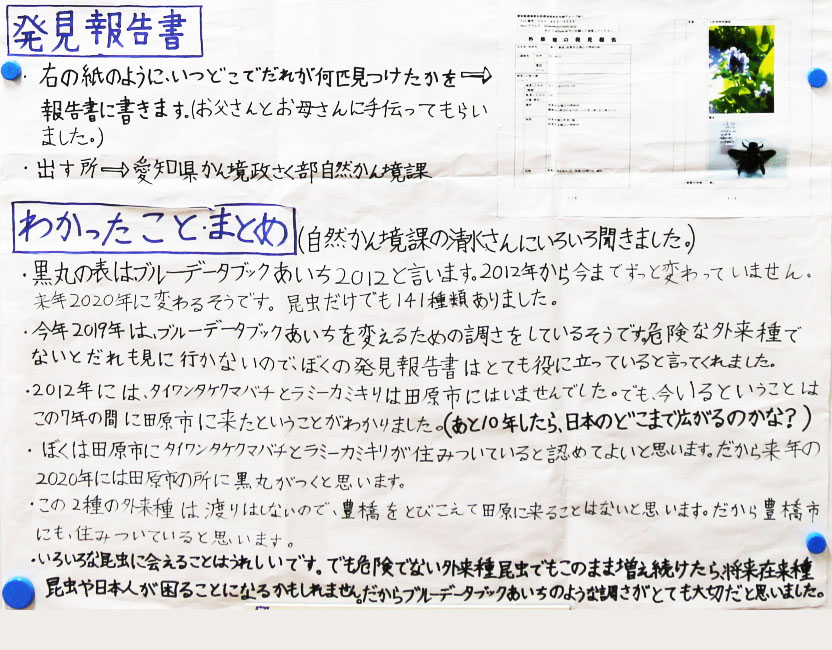 発見報告書
・右の紙のように、いつどこでだれが何匹見つけたかを⇒
報告書に書きます。(お父さんとお母さんに手伝ってもらい
ました。)
・出す所⇒愛知県かん境政さく部自然かん境課
外来種の発見報告
わかったこと・まとめ(自然かん境課の清水さんにいろいろ聞きました。)
・黒丸の表はブルーデータブックあいち2012と言います。2012年から今までずっと変わっていません。
来年2020年に変わるそうです。昆虫だけでも141種類ありました。
・今年2019年は、ブルーデータブックあいちを変えるための調さをしているそうです。危険な外来種で
ないとだれも見に行かないので、ぼくの発見報告書はとても役に立っていると言ってくれました。
・2012年には、タイワンタケクマバチとラミーカミキリは田原市にはいませんでした。でも、今いるということは
この7年の間に田原市に来たということがわかりました。(あと10年したら、日本のどこまで広がるのかな?)
・ぼくは田原市にタイワンタケクマバチとラミーカミキリが住みついていると認めてよいと思います。だから来年の
2020年には田原市の所に黒丸がつくと思います。
・この2種の外来種は渡りはしないので、豊橋をとびこえて田原に来ることはないと思います。だから豊橋市
にも、住みついていると思います。
・いろいろな昆虫に会えることはうれしいです。でも危険でない外来種昆虫でもこのまま増え続けたら、将来在来種
昆虫や日本人が困ることになるかもしれません。だからブルーデータブックあいちのような調さがとても大切だと思いました。